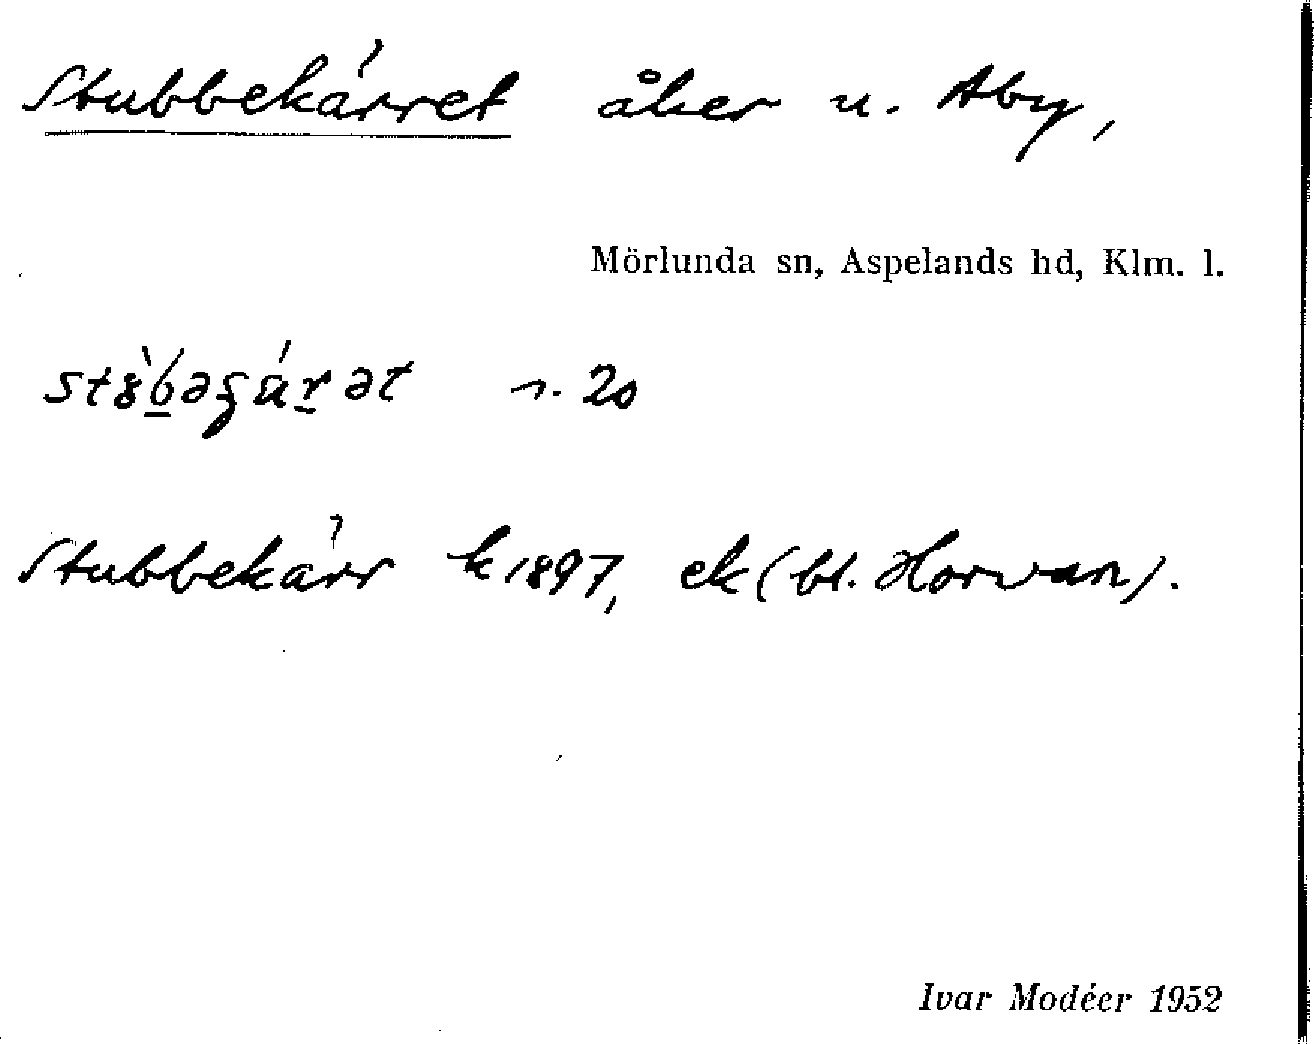 Stubbekärret åker u. Åby,
Mörlunda sn, Aspelands hd, Klm. l.
n. 20
Stubbekärr k 1897, ek (bl. Horvan).
Ivar Modéer 1952